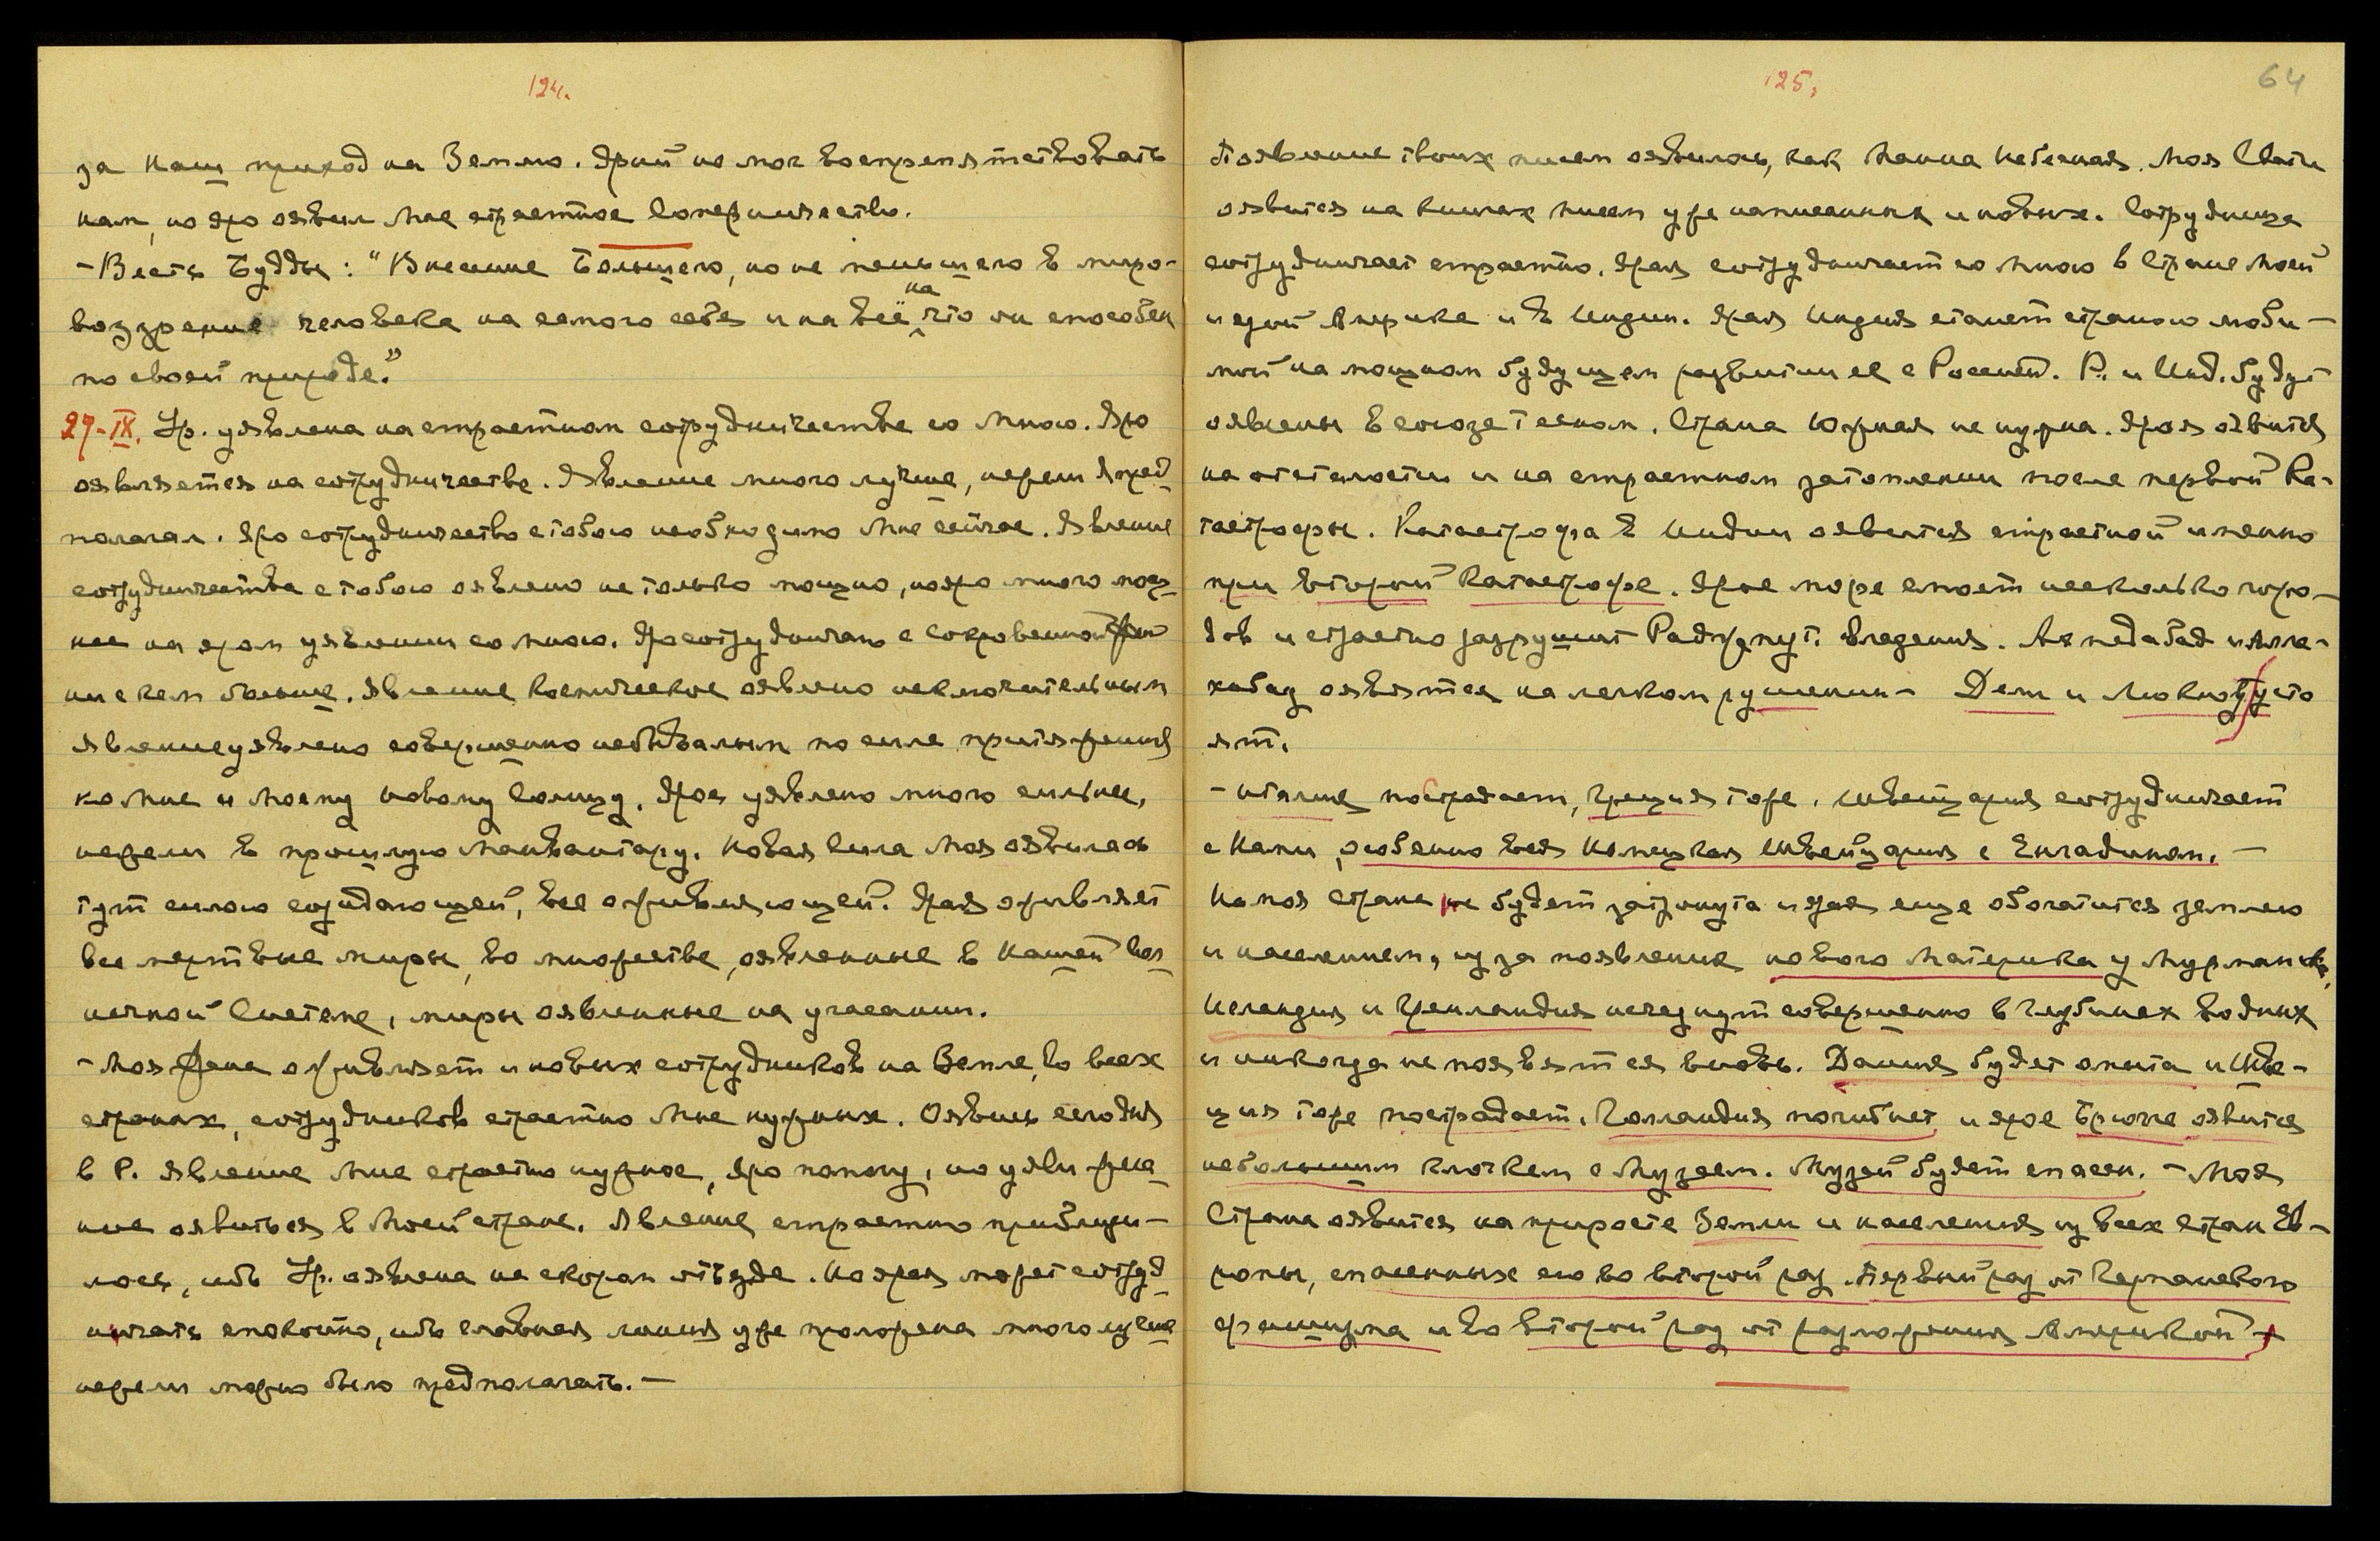 124.
за Наш приход на Землю. Ярый не мог воспрепятствовать
нам, но яро оявил Мне страстное Соперничество.
- Весть Будды: "Внесение Большего, но не меньшего в миро-
воззрение человека на самого себя и на всё на что он способен
по своей природе."
27-IX. Ур. уявлена на страстном сотрудничестве со Мною. Яро
оявляется на сотрудничестве. Явление много лучше, нежели Я пред
полагал. Яро сотрудничество с тобою необходимо Мне сейчас. Явление
сотрудничества с тобою оявлено не только мощно, но яро много мощ
нее на яром уявлении со Мною. Яро сотрудничаю с Сокровенной
ни с кем больше. Явление Космическое оявлено исключительным
явление уявлено совершенно небывалым по силе притяжения
ко Мне и Моему Новому Солнцу. Ярое уявлено много сильнее,
нежели в прошлую Манвантару. Новая Сила Моя оявилась
тут силою созидающей, все оживляющей. Ярая оживляет
все мертвые миры, во множестве, оявленные в Нашей Сол
нечной Системе, миры оявленные на угасании.
- Моя Жена оживляет и новых сотрудников на Земле, во всех
странах, сотрудников страстно Мне нужных. Оявись сегодня
в Р. Явление Мне страстно нужное, яро помогу, но уяви реше
ние оявиться в Моей стране. Явление страстно приблизи-
лось, ибо Ур. оявлена на скором отъезде. Но ярая может сотруд
ничать спокойно, ибо главная линия уже проложена много лучше
нежели можно было предполагать. -
125.
64
Появление твоих писем оявилось, как Манна Небесная. Моя Свати
оявится на книгах писем уже написанных и новых. Сотрудница
сотрудничает страстно. Ярая сотрудничает со Мною в Стране Моей
и в Америке и в Индии. Ярая Индия станет страною люби-
мой на мощном будущем развитии ее с Россией. Р. и Инд. будут
оявлены в союзе тесном. Страна Южная не нужна. Ярая оявится
на отсталости и на страстном затоплении после первой Ка-
тастрофы. Катастрофа в Индии оявится страстной именно
при второй Катастрофе. Ярое море смоет несколько горо-
дов и страстно разрушит Раджпут. владения. Ахмедабад и Алла-
хабад оявятся на легком рушении - Дели и Лакноу усто
ят.
- Италия пострадает, Греция тоже. Швейцария сотрудничает
с Нами, особенно вся Немецкая Швейцария с Енгадином. -
Но моя Страна не будет затронута и ярая еще обогатится землею
и населением, из за появления нового Материка у Мурманска,
Исландия и Гренландия исчезнут совершенно в глубинах водных
и никогда не появятся вновь. Дания будет омыта и Шве-
ция тоже пострадает. Голландия погибнет и ярое Брюгге оявится
небольшим клочком с Музеем. Музей будет спасен. - Моя
Страна оявится на приросте Земли и населения из всех стран Ев-
ропы, спасенных ею во второй раз. Первый раз от Германского
фашизма и во второй раз от разложения Америкой